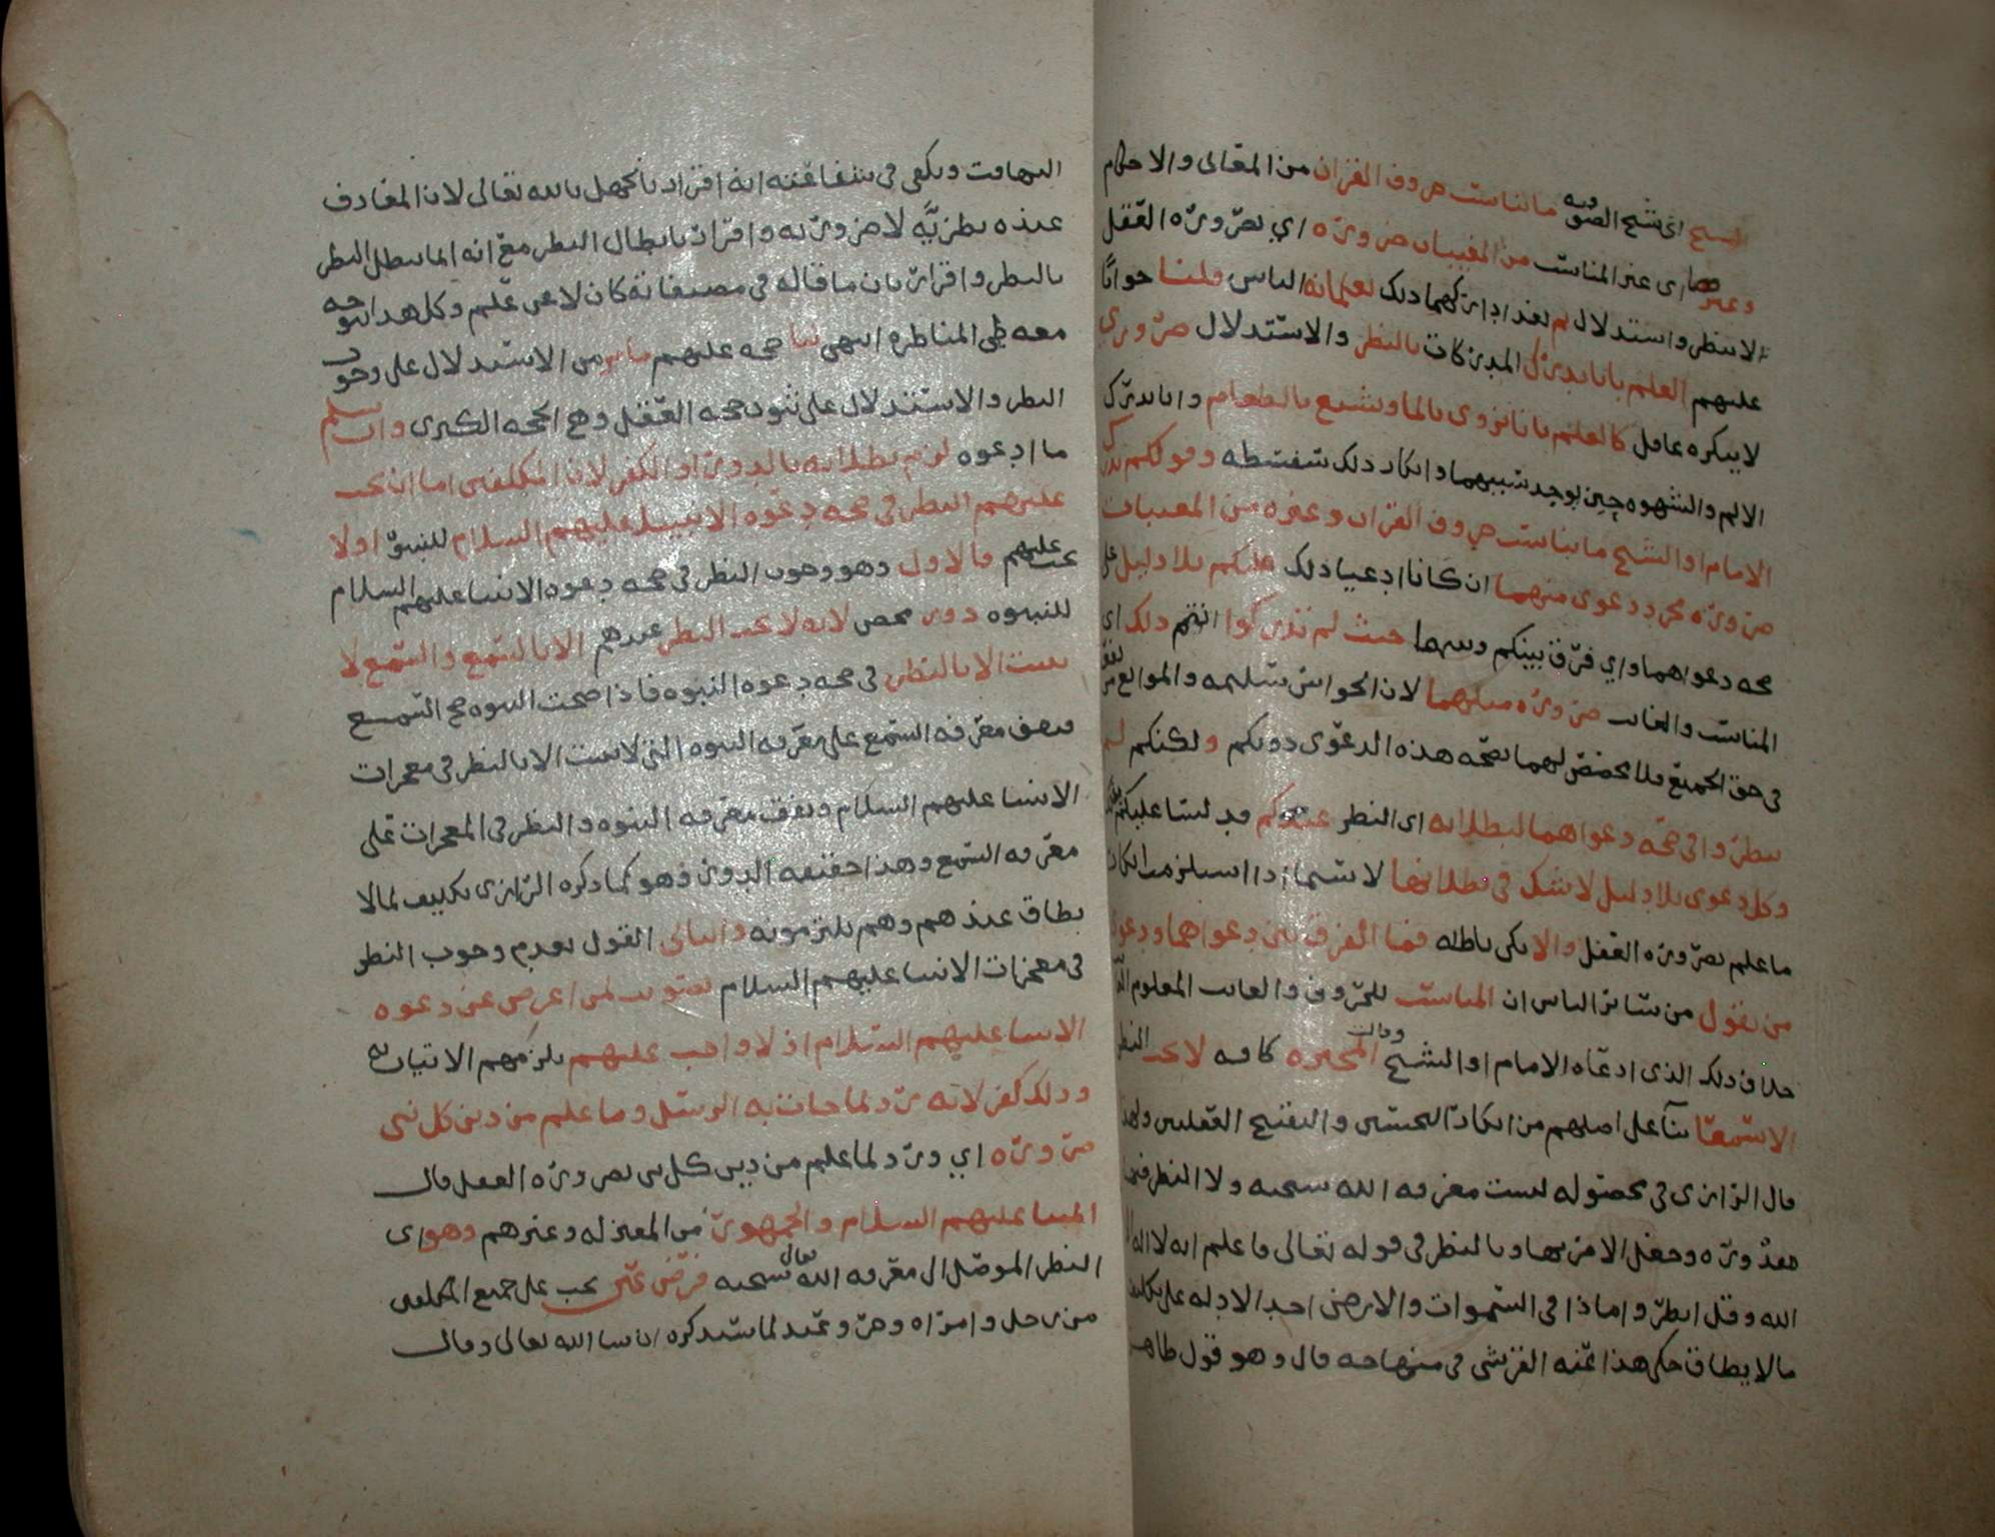 الشيخ اي شيخ الصوفيه ما يناسب حروف القران من المعاني والاحكام
وغيرها اي غير المناسب من المغيبات ضرورة اي بضرورة العقل
بلا نظر واستدلال لم يعد ادراكهما ذلك يعلمانه الناس قلنا جوابا
عليهم العلم بانا ندرك المدركات بالنظر والاستدلال ضروري
لا ينكره عاقل كالعلم بانا نروى بالما ونشبع بالطعام وانا ندرك
الالم والشهوه حين يوجد سببهما وانكار ذلك سفسطه وقولكم يدرك
الامام او الشيخ ما يناسب حروف القران وغيره من المغيبات
ضرورة مجرد دعوى منهما ان كانا ادعيا ذلك عليكم بلا دليل على
صحه دعواهما واي فرق بينكم وبينهما حيث لم تدركوا انتم ذلك اي
المناسب والغائب ضرورة مثلهما لان الحواس سليمه والموانع
في حق الجميع فلا مخصص لهما بصحه هذه الدعوى دونكم ولكنكم لم
تنظروا في صحه دعواهما لبطلانه اي النظر عندكم فدلستما عليكم
وكل دعوى بلا دليل لا شك في بطلانها لا سيما اذا استلزمت انكار
ما علم بضرورة العقل والا يكن باطله فما الفرق بين دعواهما ودعوى
من يقول من سائر الناس ان المناسب للحروف والغائب المعلوم
خلاف ذلك الذي ادعاه الامام او الشيخ وقالت المجبره كافه لا يجب النظر
الا سمعا بنآ على اصلهم من انكار التحسين والتقبيح العقليين ولهذا
قال الرازي في محصوله ليست معرفه الله سبحنه ولا النظر فيها
ضرورة وجعل الامر بها وبالنظر في قوله تعالى فاعلم انه لا اله الا
الله وقل انظروا ماذا في السموات والارض احد الادله على تكليف
ما لا يطاق حكى هذا عنه القرشي في منهاجه قال وهو قول ظاهر
التهافت ويكفي في شناعته انه اقرار بالجهل بالله تعالى لان المعارف
عنده نظريَّه لا ضروريه واقرار بابطال النظر مع انه انما يبطل النظر
بالنظر واقرار بان ما قاله في مصنفاته كان لا عن علم وكل هذا يتوجه
معه طي المناظره انتهى لنا حجه عليهم ما مر من الاستدلال على وجوب
النظر والاستدلال على ثبوت حجه العقل وهي الحجه الكبرى وان سلم
ما ادعوه لزم بطلانه بالدور او الكفر لان المكلفين اما ان يجب
عليهم النظر في صحه دعوه الانبيا عليهم السلام للنبوه او لا
يجب عليهم فالاول وهو وجوب النظر في صحه دعوه الانبيا عليهم السلام
للنبوه دور محض لانه لا يجب النظر عندهم الا بالسمع والسمع لا
يثبت الا بالنظر في صحه دعوه النبوه فاذا صحت النبوه صح السمع
فيقف معرفه السمع على معرفه النبوه التي لا تثبت الا بالنظر في معجزات
الانبيا عليهم السلام ويقف معرفه النبوه والنظر في المعجزات على
معرفه السمع وهذا حقيقه الدور فهو كما ذكره الرازي تكليف لما لا
يطاق عندهم وهم يلتزمونه والثاني القول بعدم وجوب النظر
في معجزات الانبيا عليهم السلام تصويب لمن اعرض عن دعوه
الانبيا عليهم السلام اذ لا واجب عليهم يلزمهم الاتيان به
وذلك كفر لانه رد لما جات به الرسل وما علم من دين كل نبي
ضرورة اي ورد لما علم من دين كل نبي بضرورة العقل قال
ائمتنا عليهم السلام والجمهور من المعتزله وغيرهم وهو اي
النظر الموصل الى معرفه الله سبحنه تعالى فرض عين يجب على جميع المكلفين
من رجل وامراه وحر وعبد لما سنذكره ان شا الله تعالى وقال